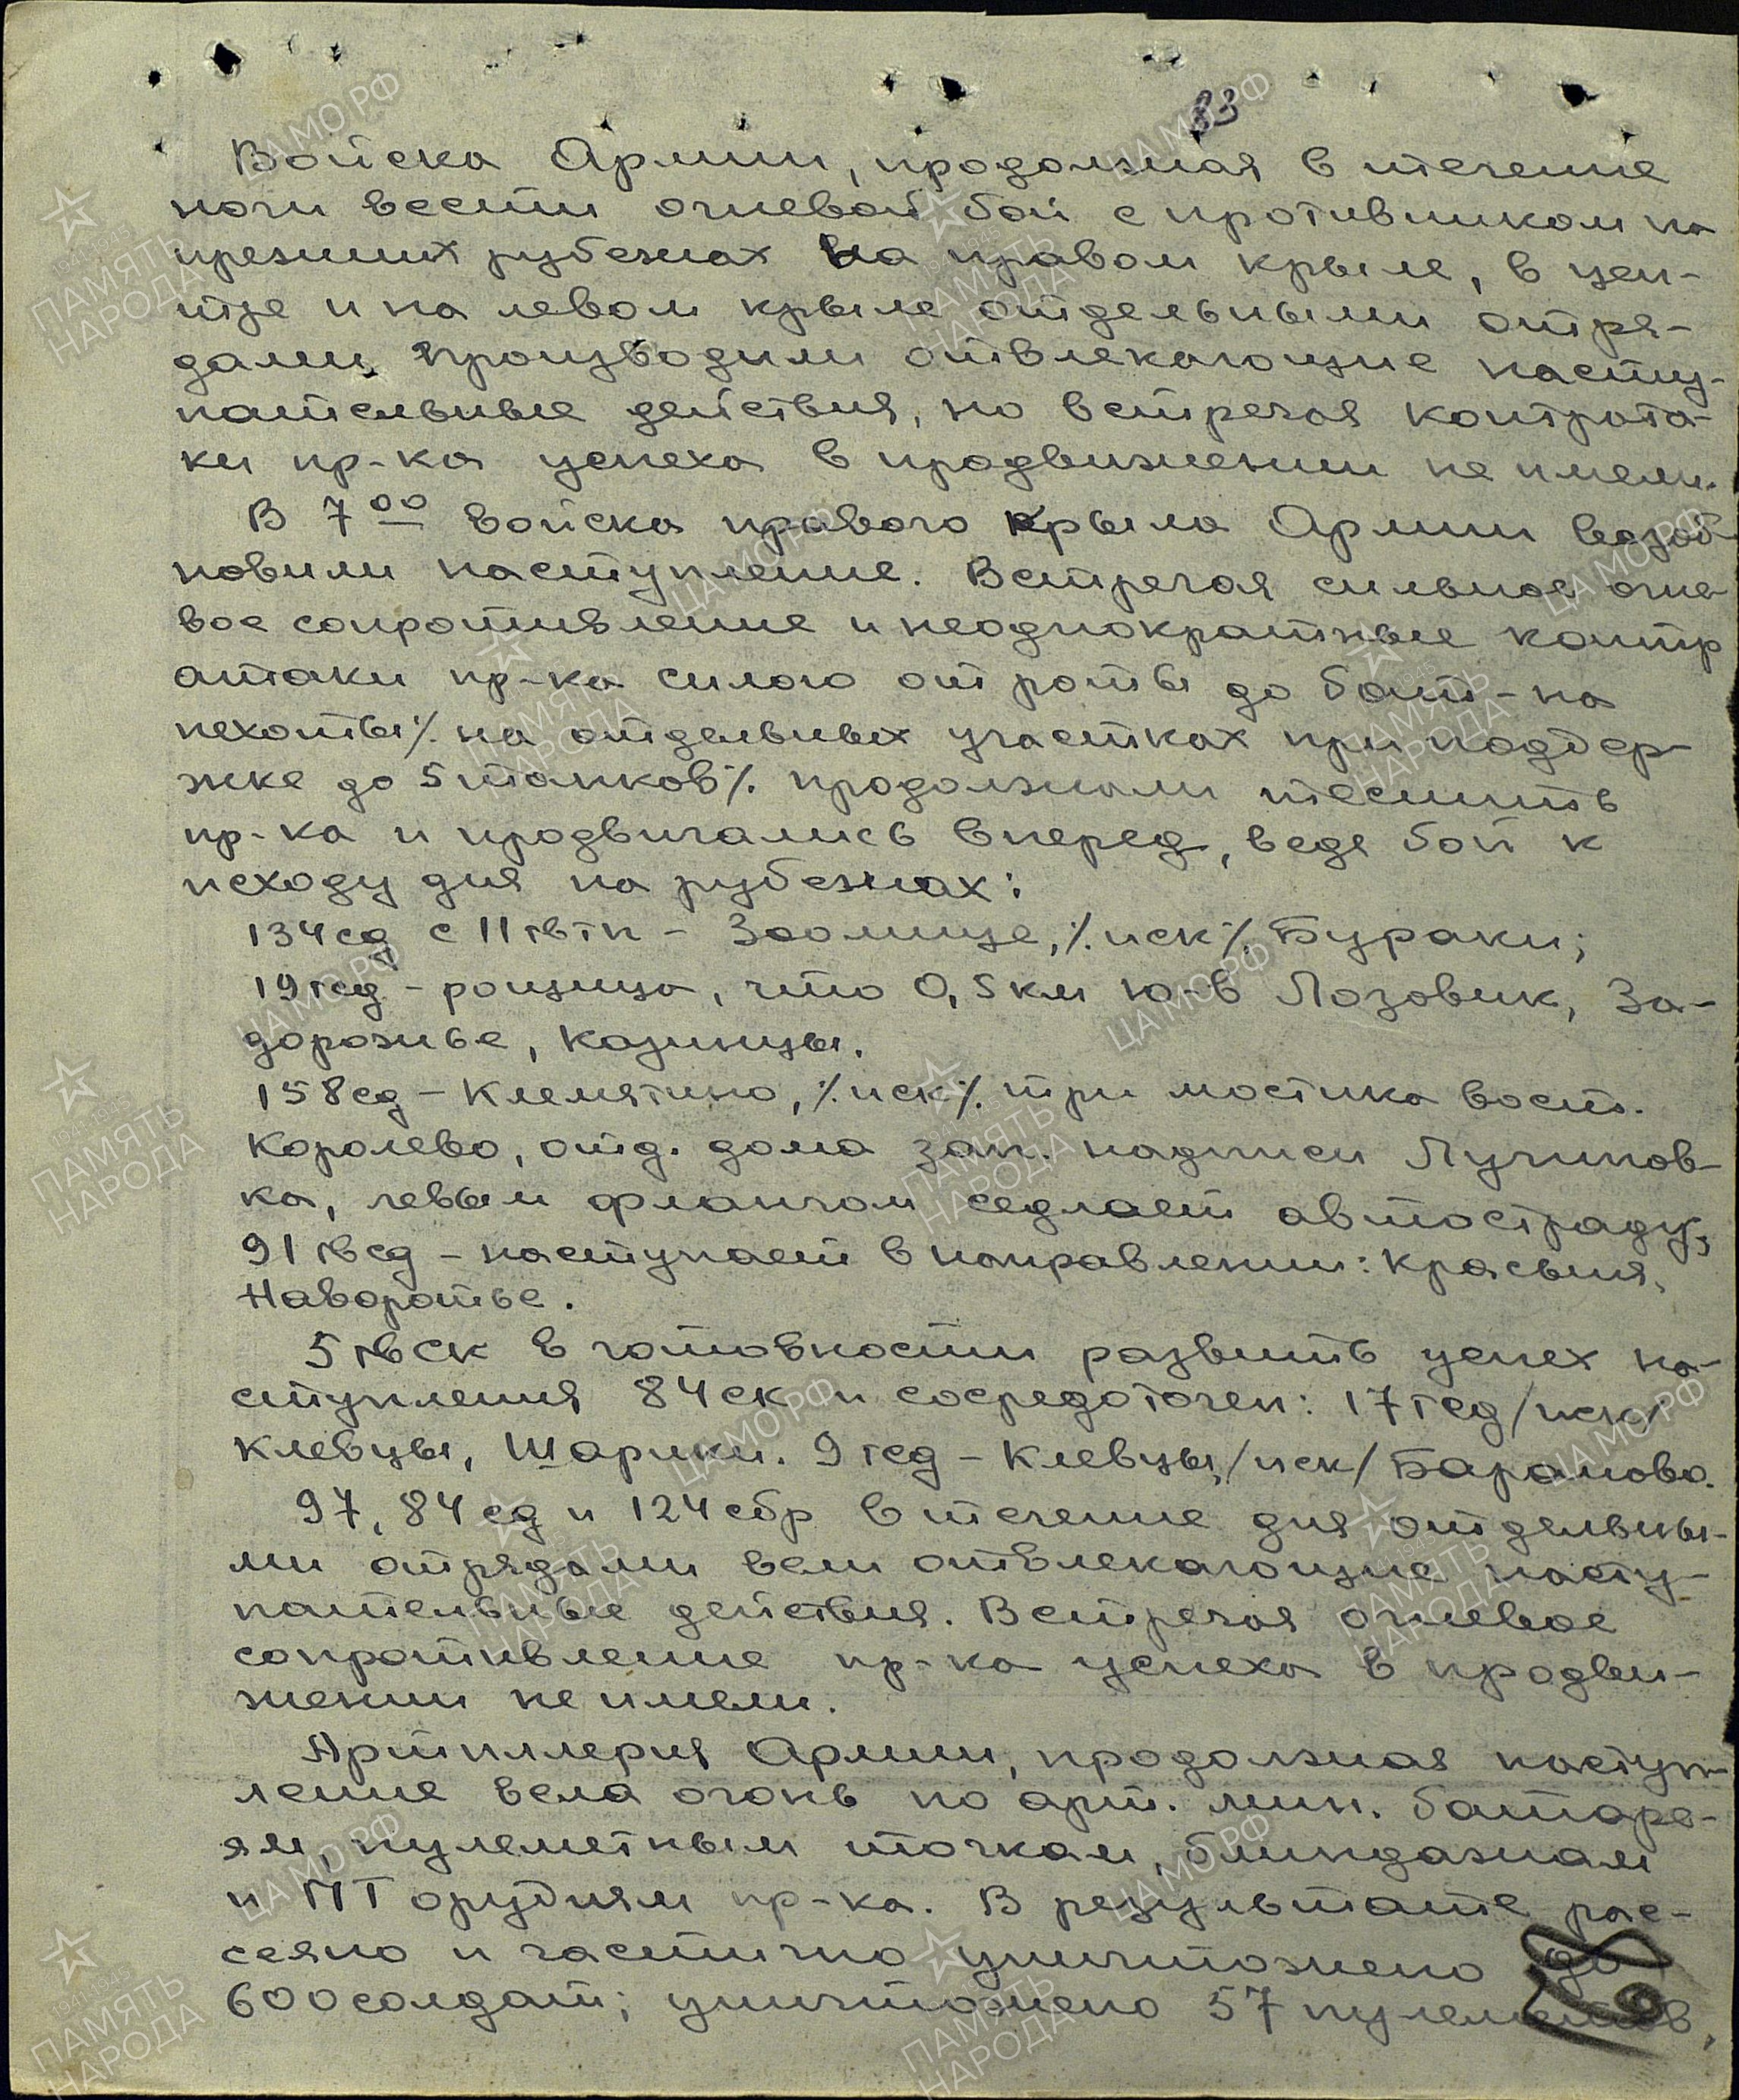 83
Войска Армии, продолжая в течение
ночи вести огневой бой с противником на
прежних рубежах на правом крыле, в цен-
тре и на левом крыле отдельными отря-
дами, производили отвлекающие насту-
пательные действия, но встречая контрата-
ки пр-ка успеха в продвижении не имели.
В 7 00 войска правого крыла Армии возоб-
новили наступление. Встречая сильное огне-
вое сопротивление и неоднократные контр
атаки пр-ка силою от роты до бат-на
пехоты ·/· на отдельных участках при поддер-
жке до 5 танков ·/· продолжали теснить
пр-ка и продвигались вперед, ведя бой к
исходу дня на рубежах:
134 сд с 11 гвтп - Заолище, ·/· иск ·/· Бураки;
19 гсд - рощица, что 0,5 км ю-в Лозовик, За-
дорожье, Казинцы.
158 сд - Клемятино, ·/· иск ·/· три мостика вост.
Королево, отд. дома зап. надписи Лучинов-
ка, левым флангом седлает автостраду,
91 гвсд - наступает в направлении: Красыня,
Наворотье.
5 гвск в готовности развить успех на-
ступления 84 ск и сосредоточен: 17 гсд /иск/
Клевцы, Шарики. 9 гсд - Клевцы, /иск/ Бараново.
97, 84 сд и 124 сбр в течение дня отдельны-
ми отрядами вели отвлекающие насту-
пательные действия. Встречая огневое
сопротивление пр-ка успеха в продви-
жении не имели.
Артиллерия Армии, продолжая наступ-
ление вела огонь по арт. мин. батаре-
ям, пулеметным точкам, блиндажам
и ПТ орудиям пр-ка. В результате рас-
сеяно и частично уничтожено до
600 солдат; уничтожено 57 пулеметов,
ЦАМО РФ
ПАМЯТЬ
НАРОДА